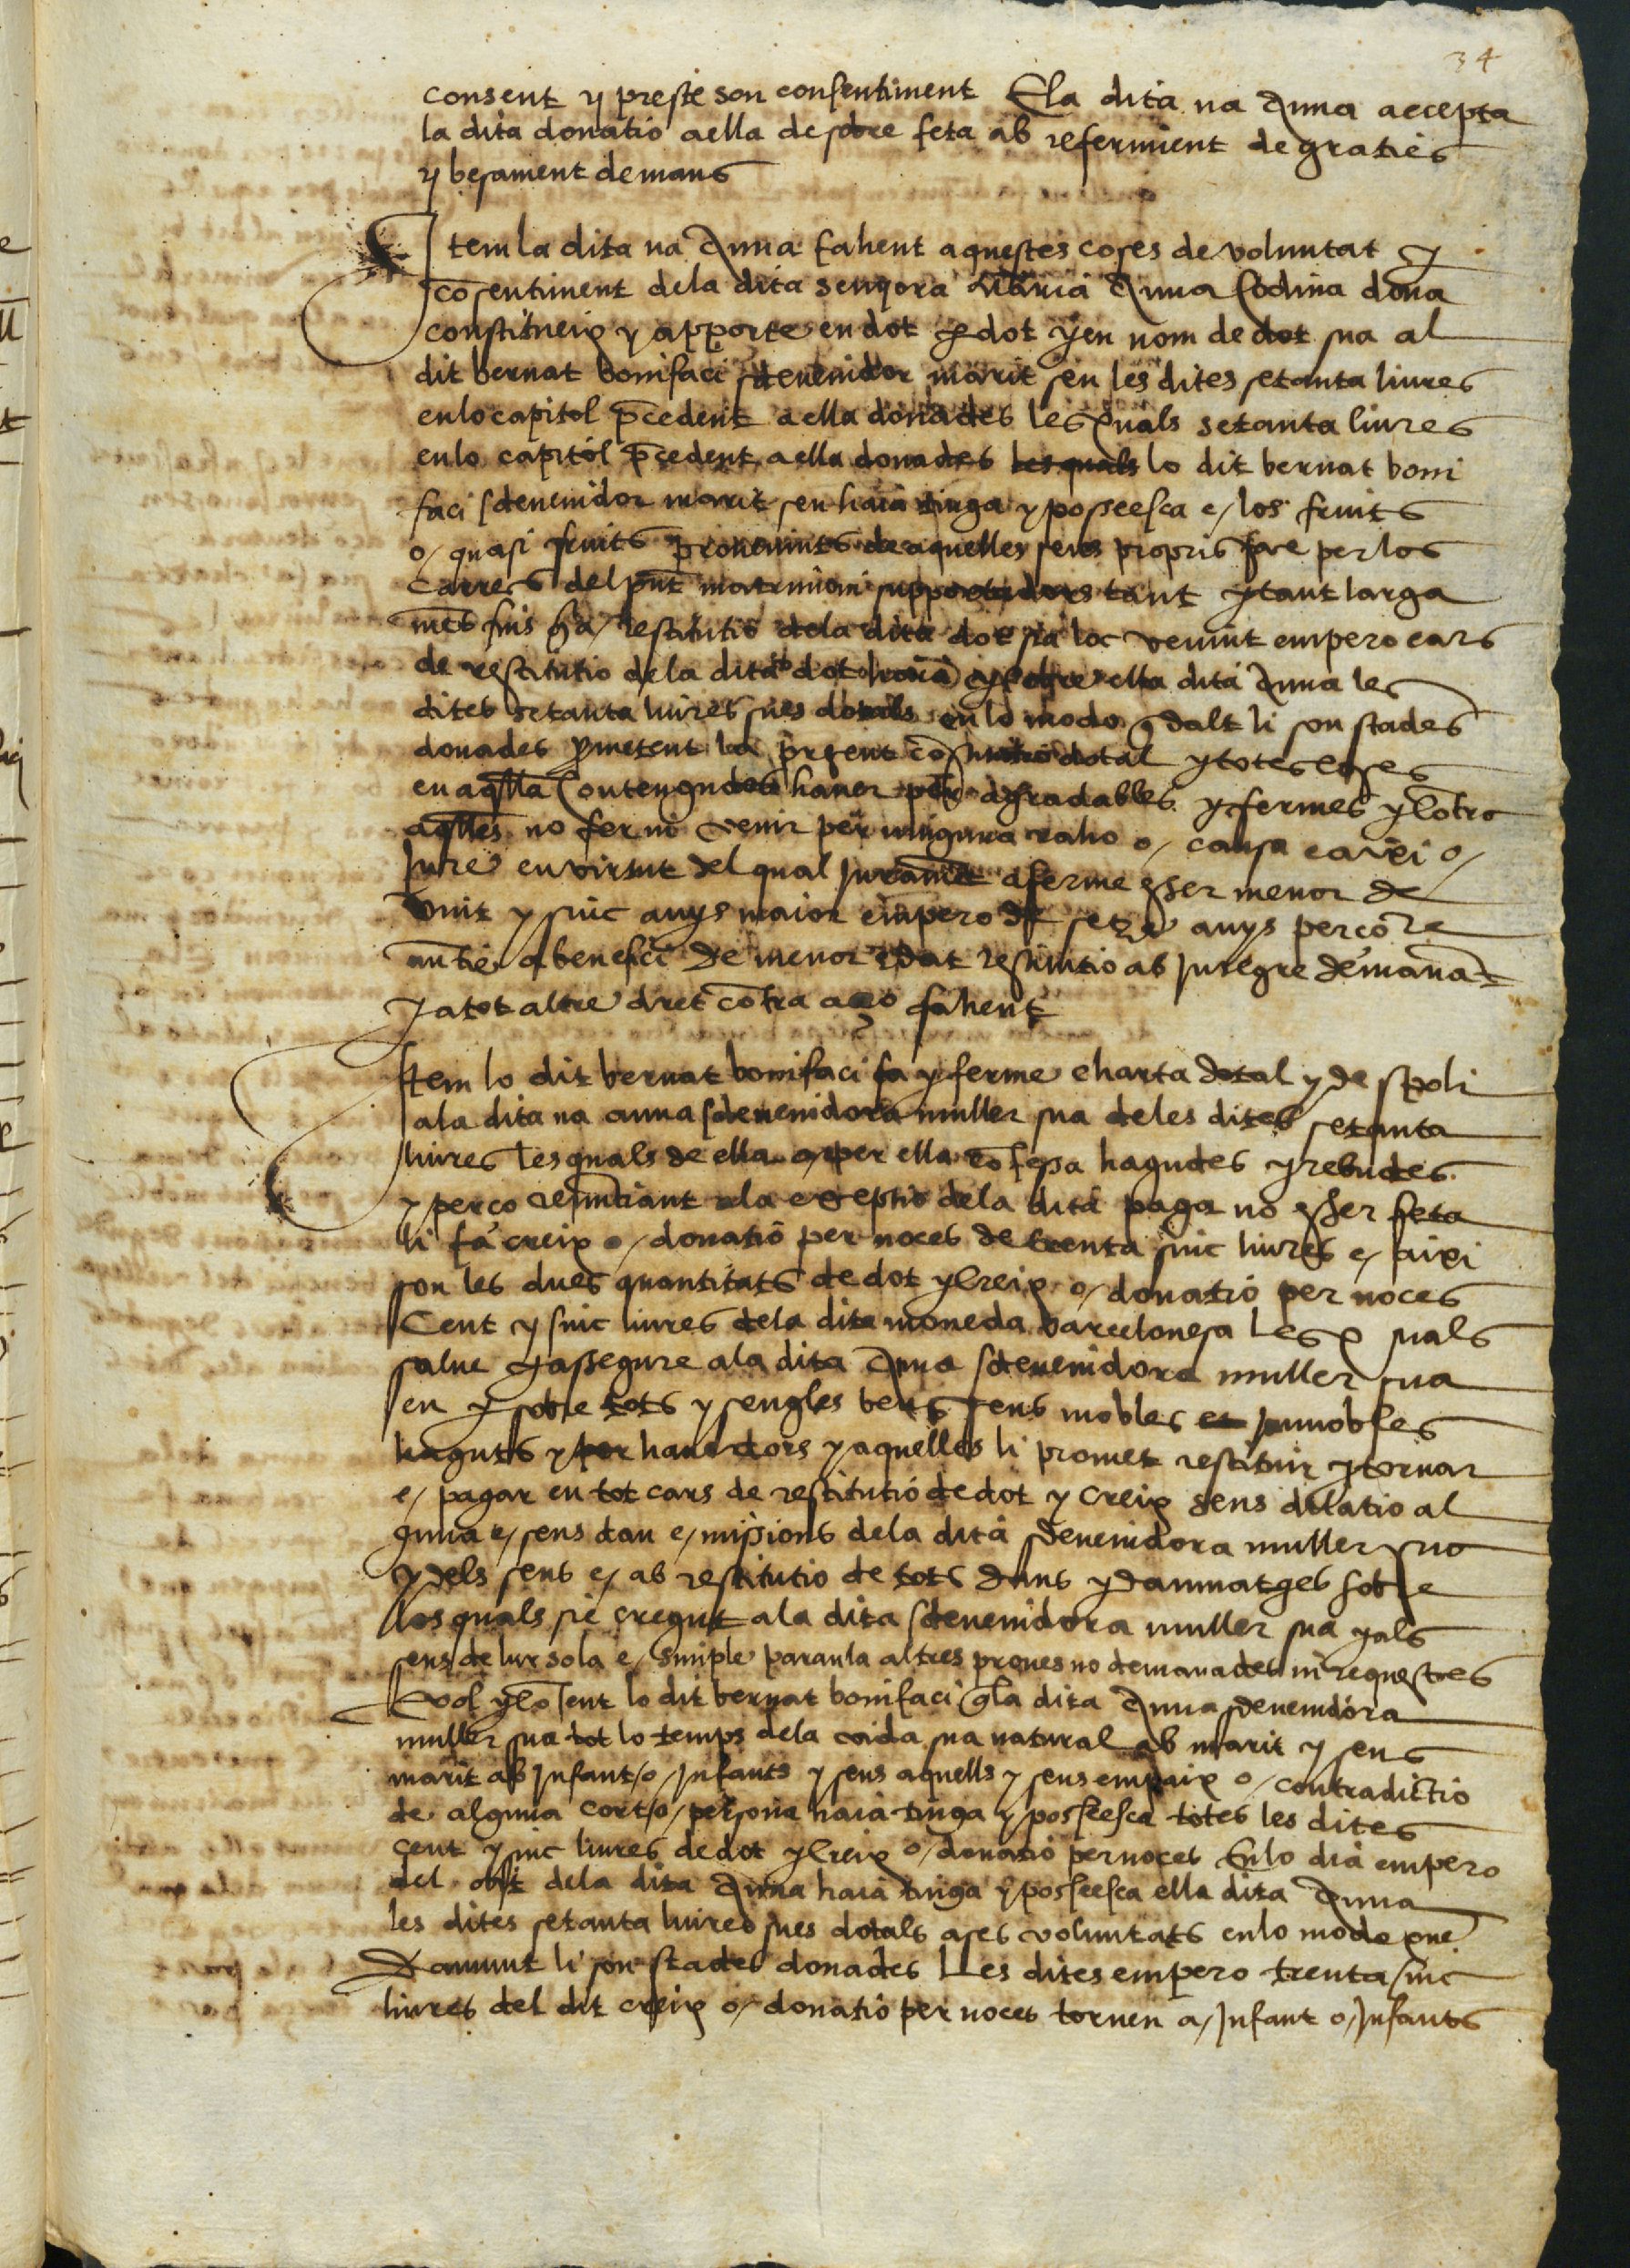 34
consent y preste son consentiment E la dita na Anna accepta
la dita donatio a ella desobre feta ab referiment de graties
y besament de mans
Item la dita na Anna fahent aquestes coses de voluntat y
cõsentiment dela dita senyora Maria Anna Codina dona
constitueix y apporte en dot per dot y en nom de dot sua al
dit bernat bonifaci sdevenidor marit seu les dites setanta liures
en lo capitol p̃cedent a ella donades les quals setanta liures
en lo capitol p̃cedent a ella donades les quals lo dit bernat boni
faci sdevenidor marit seu haia tinga y posseesca e/ los fruits
o/ quasi fruits provenints de aquelles seus propris fae per los
carrecs del pñt matrimoni supportadors tant y tant larga
mẽt fins q̃ a/ restitutio dela dita dot sia loc venint empero cars
de restitutio dela dita dot haia y cobre ella dita Anna les
dites setanta liures sues dotals en lo modo q̃ dalt li son stades
donades p̱metent la present cõstitutio dotal y totes coses
en aq̃lla contengudes haver per agradables y fermes y cõtra
aq̃lles no fer ni venir per ninguna raho o/ causa e axi o/
jure en virtut del qual juramẽt aferme esser menor de
vint y sinc anys maior empero de setze anys per ço re
nũtie a benefici de menor edat restitutio ab integre demanar
y a tot altre dret cõtra aço fahent
Item lo dit bernat bonifaci fa y ferme charta dotal y de spoli
a la dita na anna sdevenidora muller sua de les dites setanta
liures les quals de ella y per ella cõfessa hagudes y rebudes
y per ço renũtiant a la exceptio dela dita paga no esser feta
li fa creix o/ donatio per noces de trenta sinc liures e/ aixi
son les dues quantitats de dot y creix o/ donatio per noces
Cent y sinc liures dela dita moneda barcelonesa Les quals
salve y assegure a la dita Anna sdevenidora muller sua
en y sobre tots y sengles bens seus mobles et inmobles
haguts y per havedors y aquelles li promet restituir y tornar
e/ pagar en tot cars de restitutió de dot y creix sens dilatio al
guna e/ sens dan e/ missions dela dita sdevenidora muller sua
y dels seus e/ ab restitutio de tots dans y dammatges sobre
los quals sie cregut a la dita sdevenidora muller sua y als
seus de lur sola e/ simple paraula altres proves no demanades ni requestes
E vol y cõsent lo dit bernat bonifaci q̃ la dita Anna sdevenidora
muller sua tot lo temps dela vida sua natural ab marit y sens
marit ab infant/o/ infants y sens aquells y sens empaix o/ contradictio
de alguna cort/o/ persona haia tinga y posseesca totes les dites
cent y sinc liures de dot y creix o/ donatió per noces En lo dia empero
del obit dela dita Anna haia tinga y posseesca ella dita Anna
les dites setanta liures sues dotals a ses voluntats en lo modo que
damunt li son stades donades Les dites empero trenta sinc
liures del dit creix o/ donatió per noces tornen a/ infant o/ infants